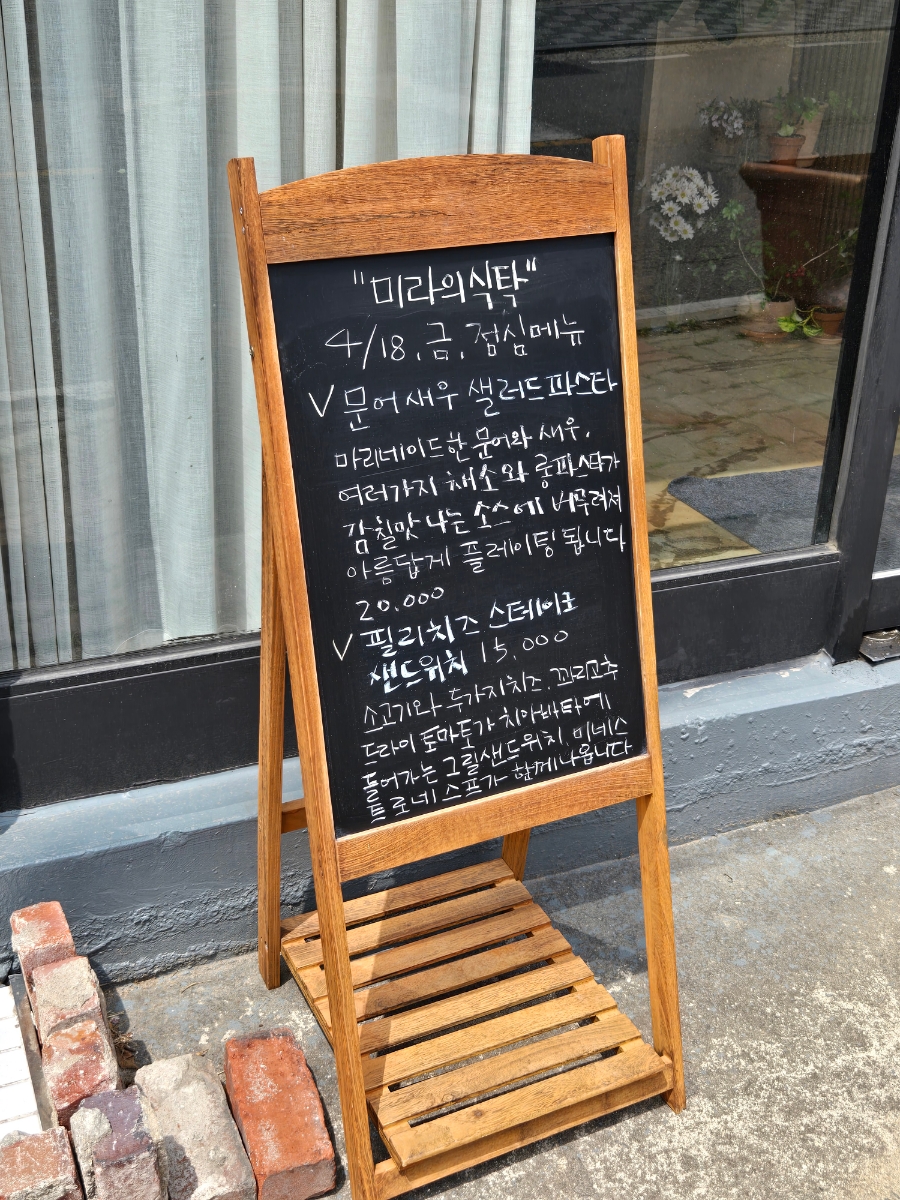 "미라의식탁"
4/18.금.점심메뉴
V 문어새우 샐러드파스타
마리네이드한 문어와 새우,
여러가지 채소와 롱파스타가
감칠맛 나는 소스에 버무려져
아름답게 플레이팅 됩니다
20.000
V 필리치즈 스테이크
샌드위치 15,000
소고기와 두가지치즈, 꽈리고추
드라이 토마토가 치아바타에
들어가는 그릴샌드위치, 미네스
트로네 스프가 함께나옵니다